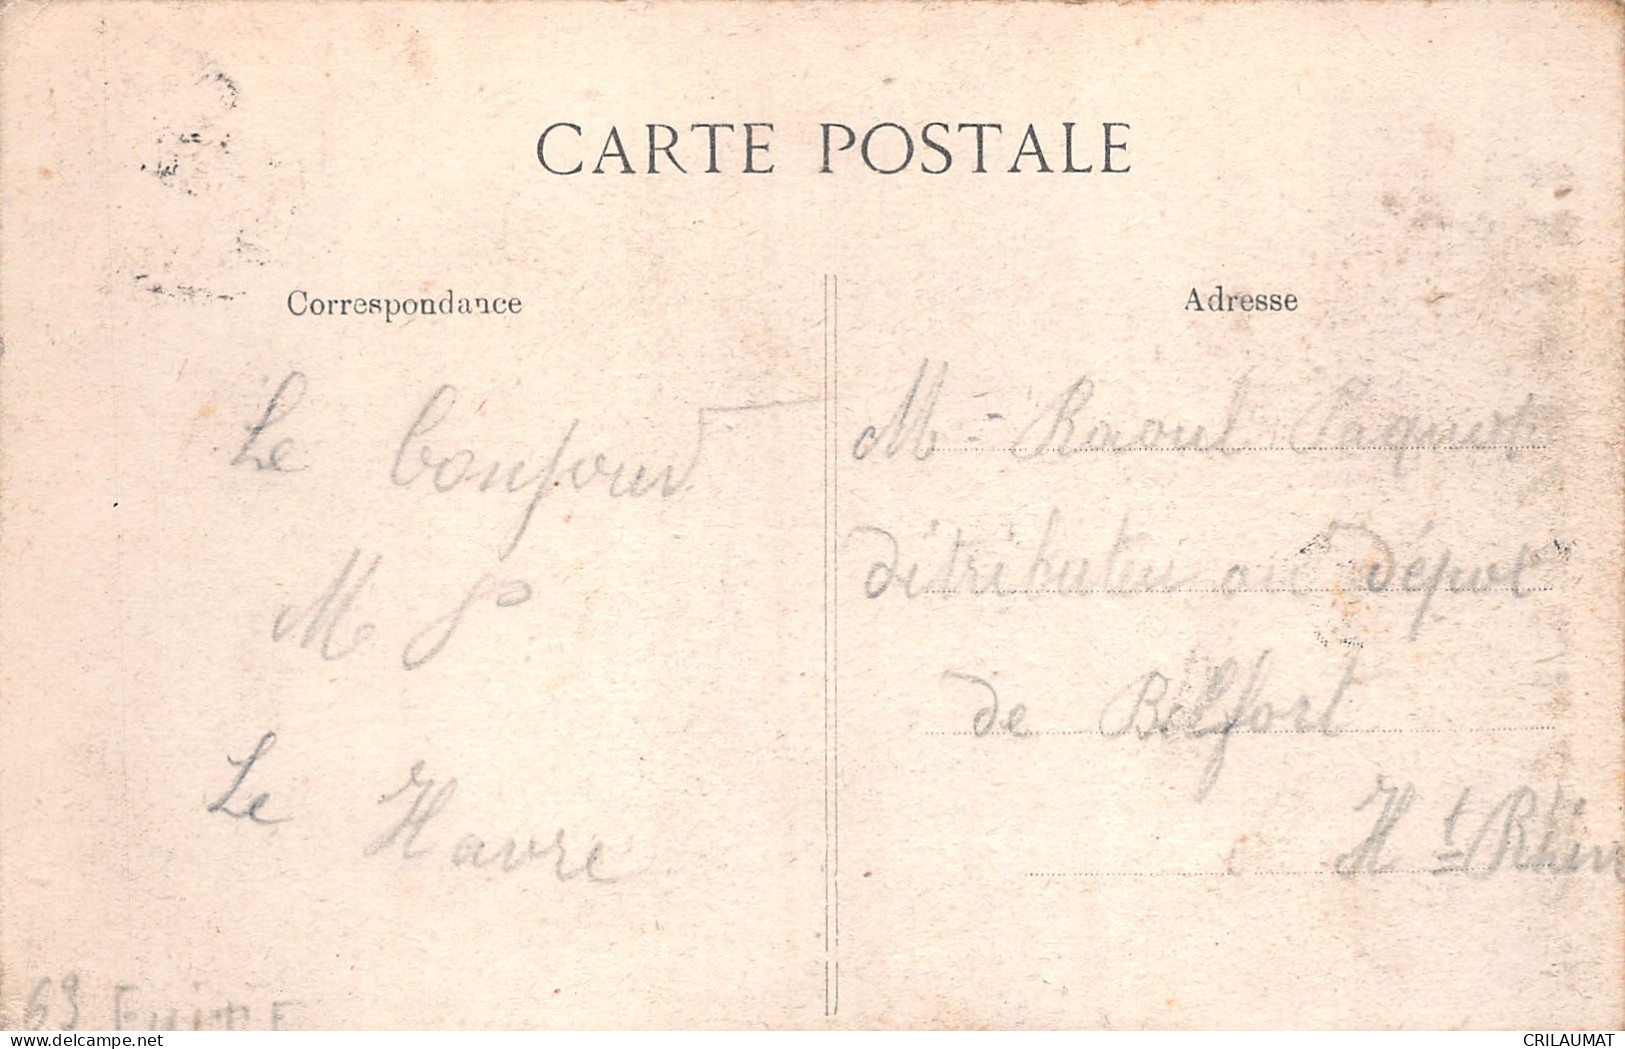 CARTE POSTALE
Correspondance
Le bonjour
M
Le Havre
Adresse
M= Raoul
ditributeur au dépot
de Belfort
Ht Rhin
69
delcampe.net
CRILAUMAT